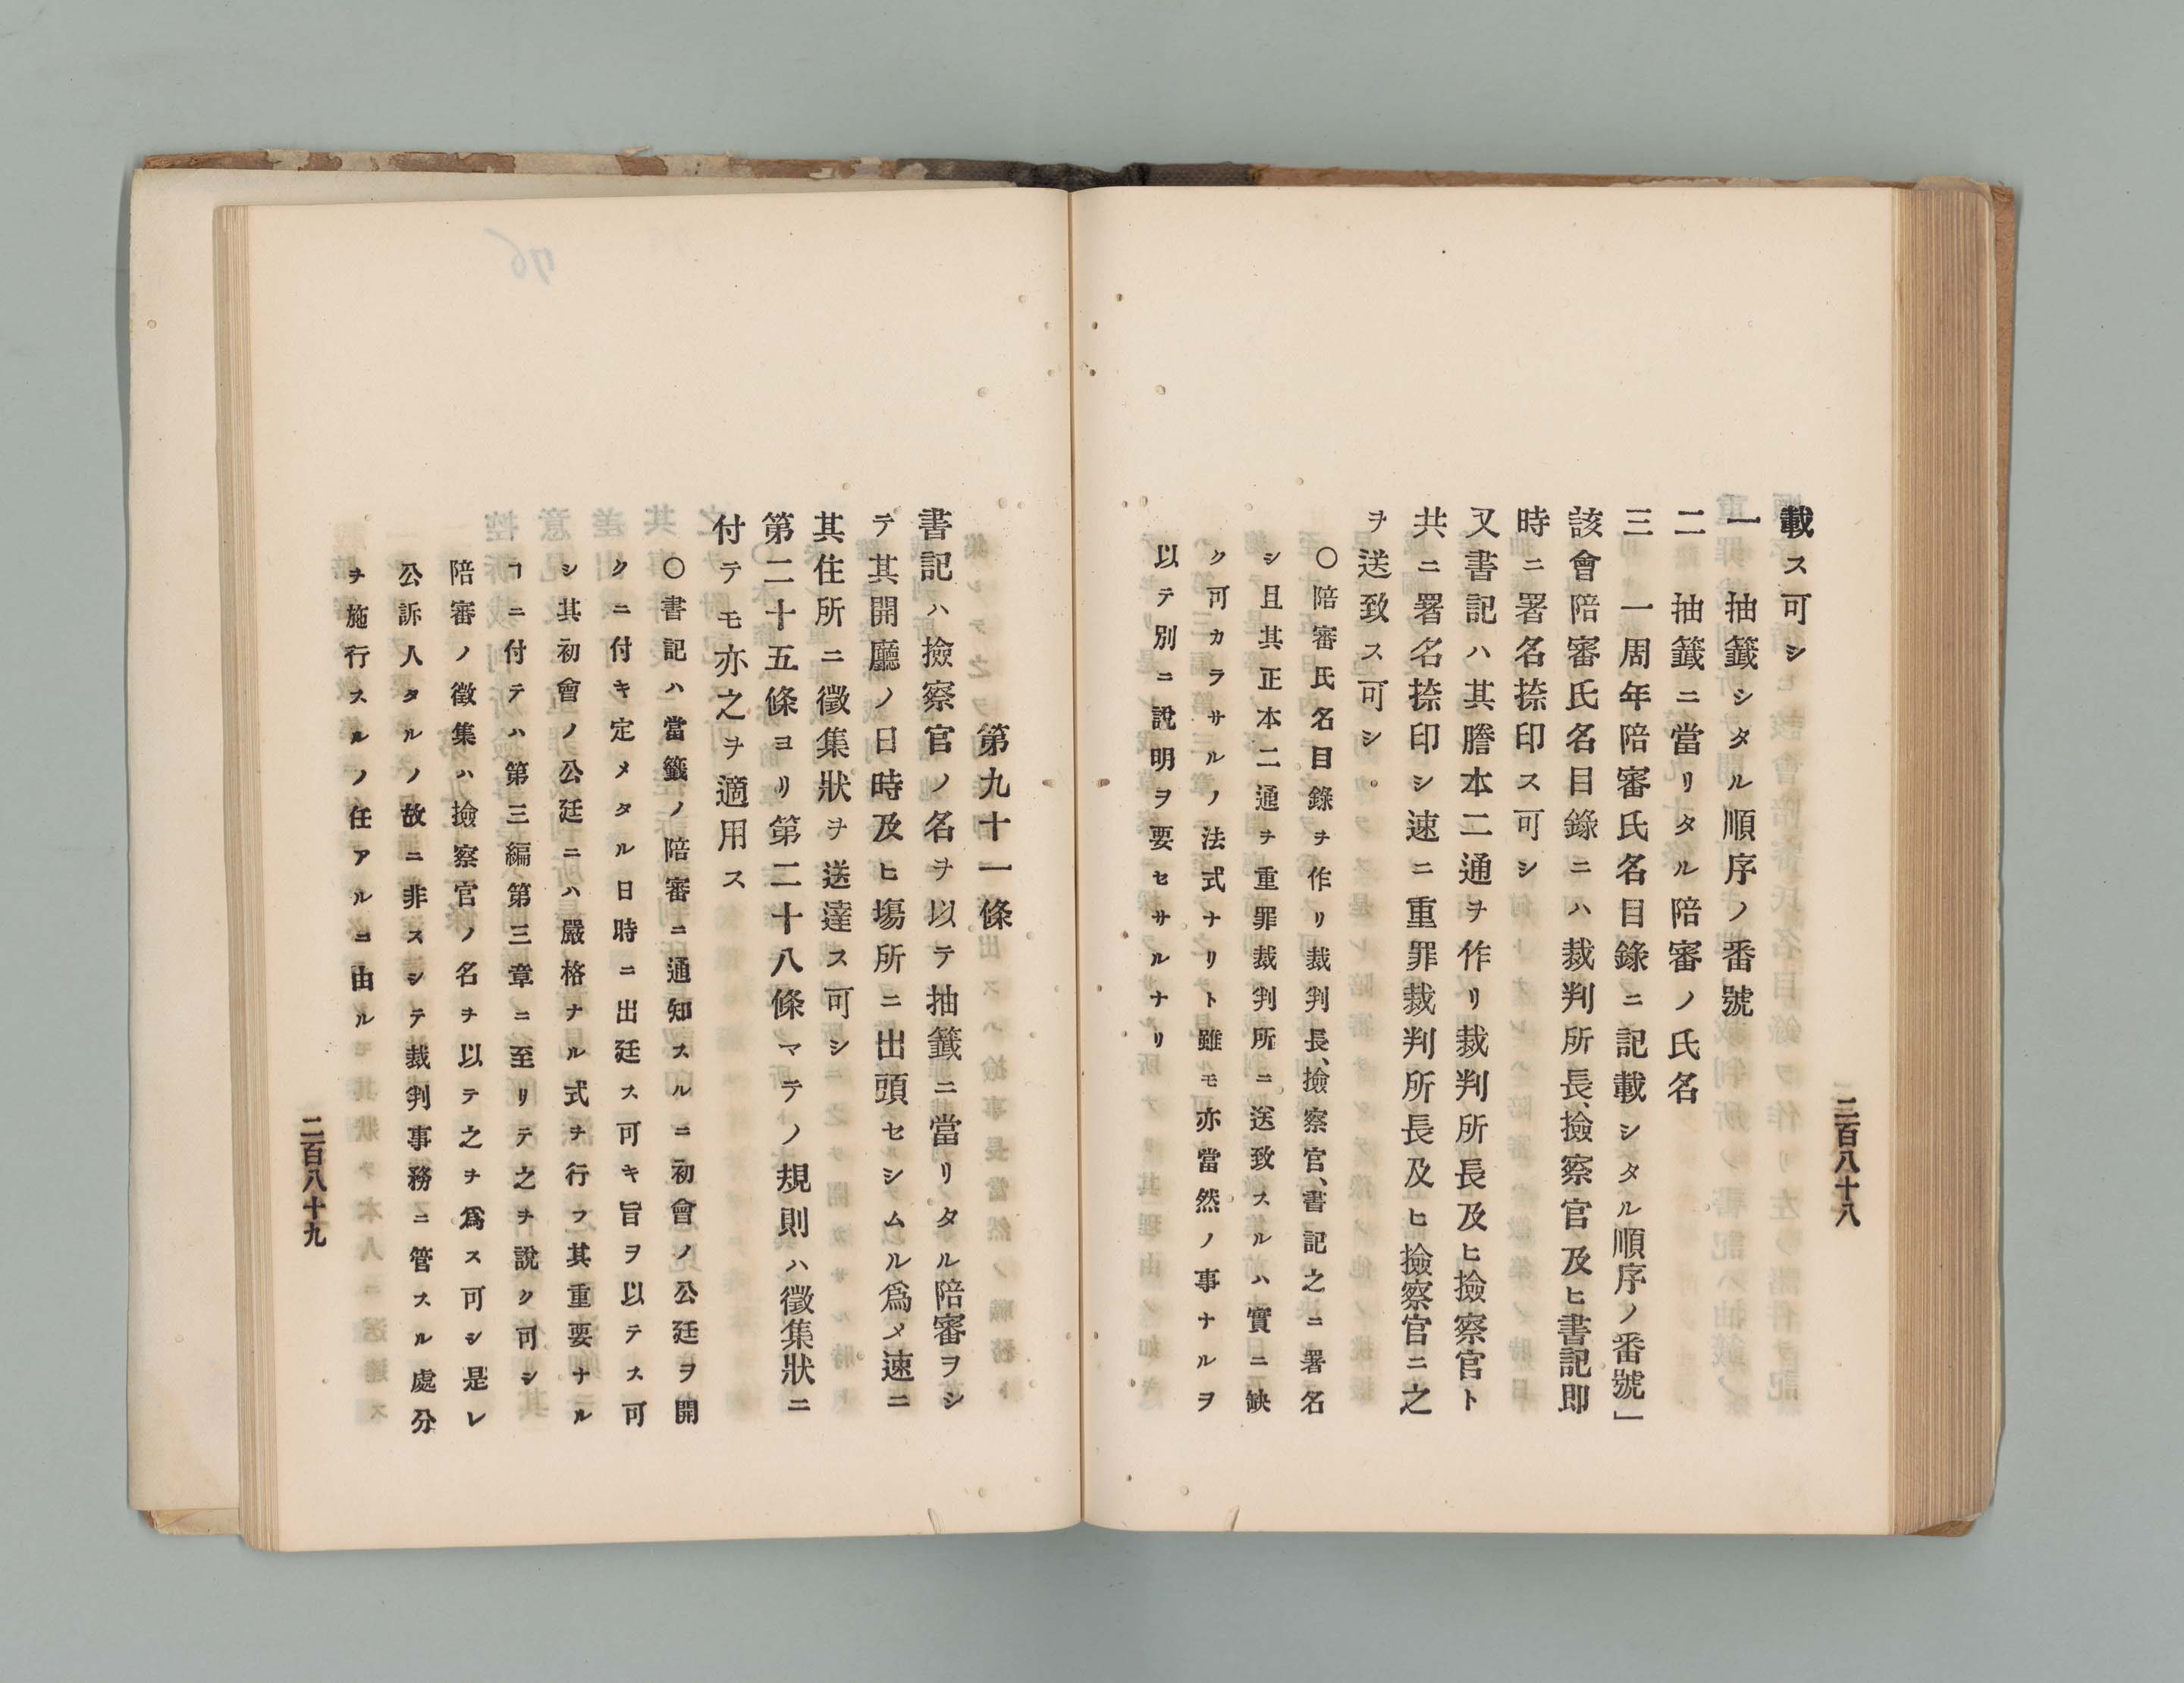 二百八十八
載ス可シ
一　抽籤シタル順序ノ番號
二　抽籤ニ當リタル陪審ノ氏名
三　一周年陪審氏名目錄ニ記載シタル順序ノ番號」
該會陪審氏名目錄ニハ裁判所長、撿察官及ヒ書記即
時ニ署名捺印ス可シ
又書記ハ其謄本二通ヲ作リ裁判所長及ヒ撿察官ト
共ニ署名捺印シ速ニ重罪裁判所長及ヒ撿察官ニ之
ヲ送致ス可シ。
〇陪審氏名目錄ヲ作リ裁判長、撿察官、書記之ニ署名
シ且其正本二通ヲ重罪裁判所ニ送致スルハ實ニ缺
ク可カラサルノ法式ナリト雖モ亦當然ノ事ナルヲ
以テ別ニ說明ヲ要セサルナリ
第九十一條
書記ハ撿察官ノ名ヲ以テ抽籤ニ當リタル陪審ヲシ
テ其開廳ノ日時及ヒ塲所ニ出頭セシムル爲メ速ニ
其住所ニ徵集狀ヲ送達ス可シ
第二十五條ヨリ第二十八條マテノ規則ハ徵集狀ニ
付テモ亦之ヲ適用ス
〇書記ハ當籤ノ陪審ニ通知スルニ初會ノ公廷ヲ開
クニ付キ定メタル日時ニ出廷ス可キ旨ヲ以テス可
シ其初會ノ公廷ニハ嚴格ナル式ヲ行フ其重要ナル
ヿニ付テハ第三編第三章ニ至リテ之ヲ說ク可シ
陪審ノ徵集ハ撿察官ノ名ヲ以テ之ヲ爲ス可シ是レ
公訴人タルノ故ニ非スシテ裁判事務ニ管スル處分
ヲ施行スルノ任アルニ由ル
二百八十九
76